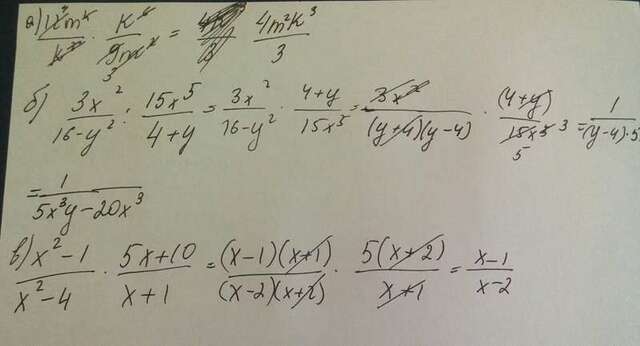 а) 12m⁴/k³ · k⁶/9m² = 4m²k³/3
б) 3x²/16-y² : 15x⁵/4+y = 3x²/16-y² · 4+y/15x⁵ = 3x²/(y+4)(y-4) · (4+y)/15x⁵ 3 5 = 1/(y-4)·5
= 1/5x³y-20x³
в) x²-1/x²-4 · 5x+10/x+1 = (x-1)(x+1)/(x-2)(x+2) · 5(x+2)/x+1 = x-1/x-2